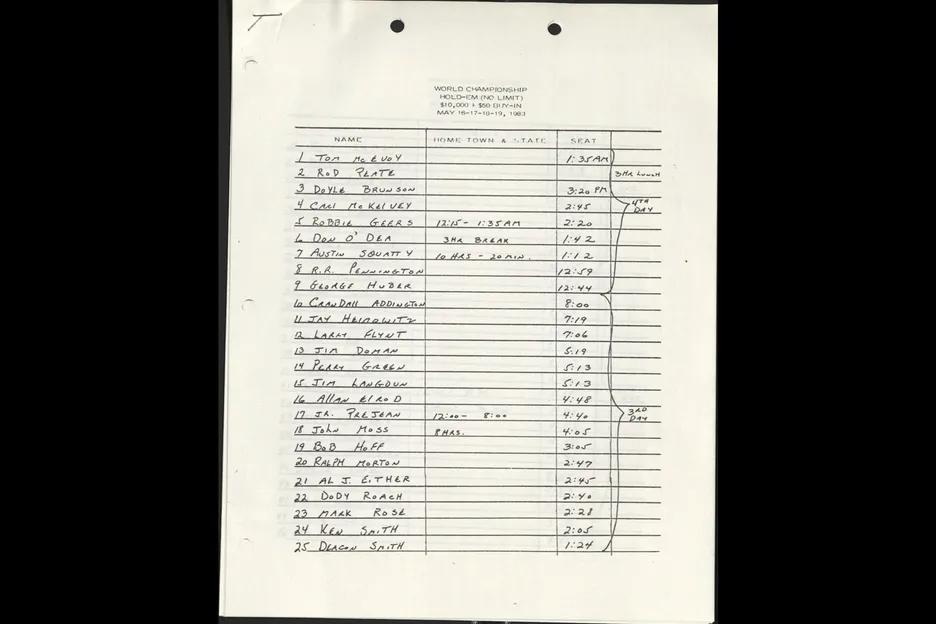 WORLD CHAMPIONSHIP
HOLD-EM (NO LIMIT)
$10,000 + $50 BUY-IN
MAY 16-17-18-19, 1983
NAME HOME TOWN & STATE SEAT
1 TOM McEVOY 1:35 AM
2 ROD PEATE 3HR LUNCH
3 DOYLE BRUNSON 3:20 PM
4 CARL McKELVEY 2:45 4TH DAY
5 ROBBIE GEERS 12:15 - 1:35 AM 2:20
6 DON O'DEA 3HR BREAK 1:42
7 AUSTIN SQUATTY 10 HRS - 20 MIN. 1:12
8 R.R. PENNINGTON 12:59
9 GEORGE HUBER 12:44
10 CRANDALL ADDINGTON 8:00
11 JAY HEIMOWITZ 7:19
12 LARRY FLYNT 7:06
13 JIM DOMAN 5:19
14 PERRY GREEN 5:13
15 JIM LANGDUN 5:13
16 ALLAN ELROD 4:48
17 JR. PREJEAN 12:00 - 8:00 4:40 3RD DAY
18 JOHN MOSS 8 HRS. 4:05
19 BOB HOFF 3:05
20 RALPH MORTON 2:47
21 AL J. EITHER 2:45
22 DODY ROACH 2:40
23 MARK ROSE 2:28
24 KEN SMITH 2:05
25 DEACON SMITH 1:24